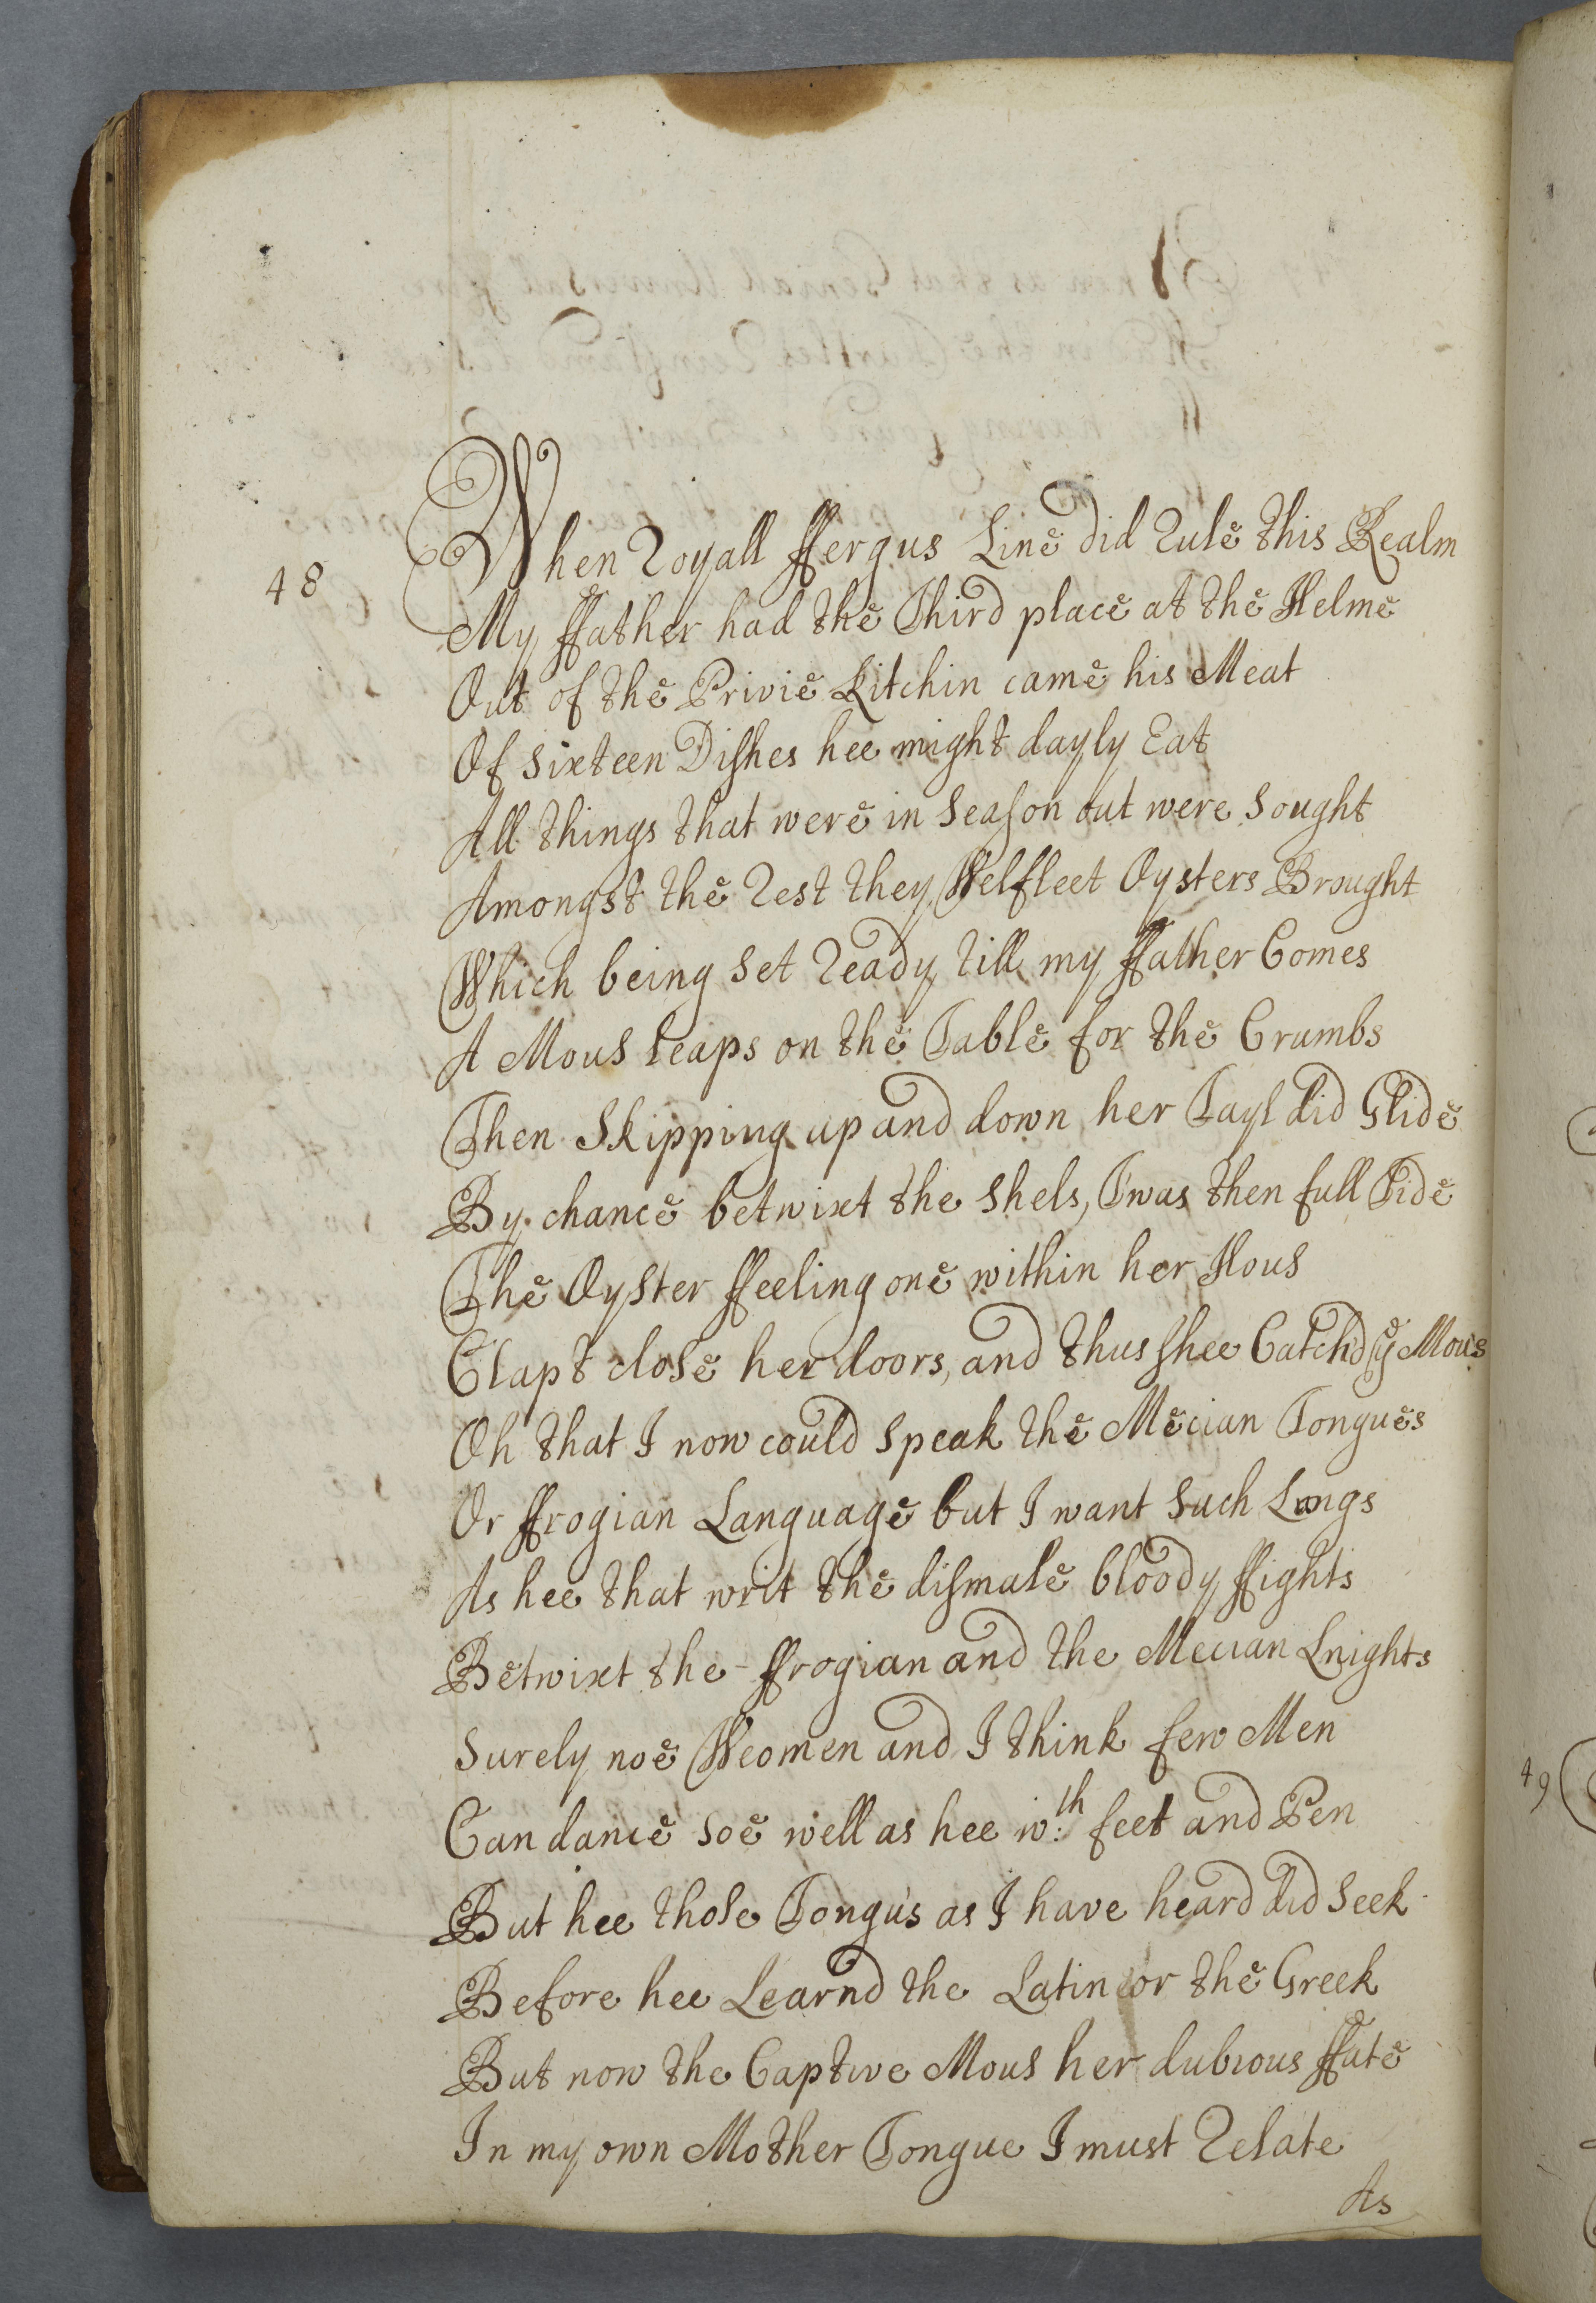 48
When Royall ffergus Line did Rule this Realm
My ffather had the Third place at the Helme
Out of the Privie Kitchin came his Meat
Of sixteen Dishes hee might dayly Eat
All things that were in Season out were Sought
Amongst the Rest they Welfleet Oysters Brought
Which being Set Ready till my ffather Comes
A Mous leaps on the Table for the Crumbs
Then Skipping up and down her Tayl did Glide
By chance betwixt the Shels, Twas then full Tide
The Oyster ffeeling one within her Hous
Clapt close her doors, and thus shee Catch'd ye Mous
Oh that I now could Speak the Mecian Tongues
Or ffrogian Language but I want Such Lungs
As hee that writ the dismale bloody ffights
Betwixt the ffrogian and the Mecian Knights
Surely noe Weomen and I think few Men
Can dance soe well as hee wth feet and Pen
But hee those Tongu's as I have heard did Seek
Before hee Learnd the Latin or the Greek
But now the Captive Mous her dubious ffate
In my own Mother Tongue I must Relate
As
49